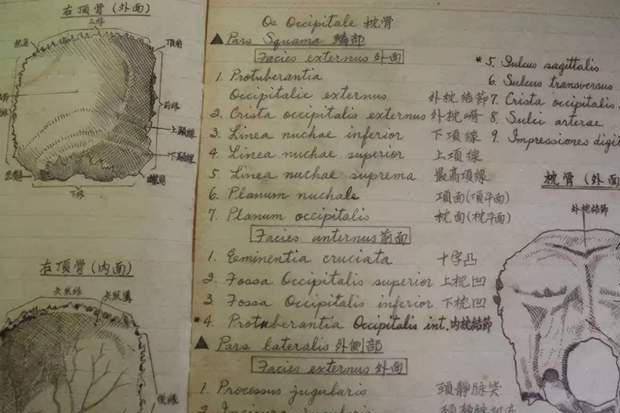 右頂骨 (外面)
上緣
頂角
前緣
上顳線
下顳線
下緣
右頂骨 (内面)
Os Occipitale 枕骨
▲ Pars Squama 鱗部
Facies externus 外面
1. Protuberantia
Occipitalic externus 外枕結節
2. Crista occipitalis externus 外枕嵴
3. Linea nuchae inferior 下項線
4. Linea nuchae superior 上項線
5. Linea nuchae suprema 最高項線
6. Planum nuchale 項面(項平面)
7. Planum occipitalis 枕面(枕平面)
Facies internus 前面
1. Eminentia cruciata 十字凸
2. Fossa Occipitalis superior 上枕凹
3. Fossa Occipitalis inferior 下枕凹
*4. Protuberantia Occipitalis int. 内枕結節
▲ Pars lateralis 外側部
Facies externus 外面
1. Processus jugularis 頸静脉突
*5. Sulcus sagittalis
6. Sulcus transversus
7. Crista occipitalis
8. Sulci arterae
9. Impressiones
枕骨 (外面)
外枕結節